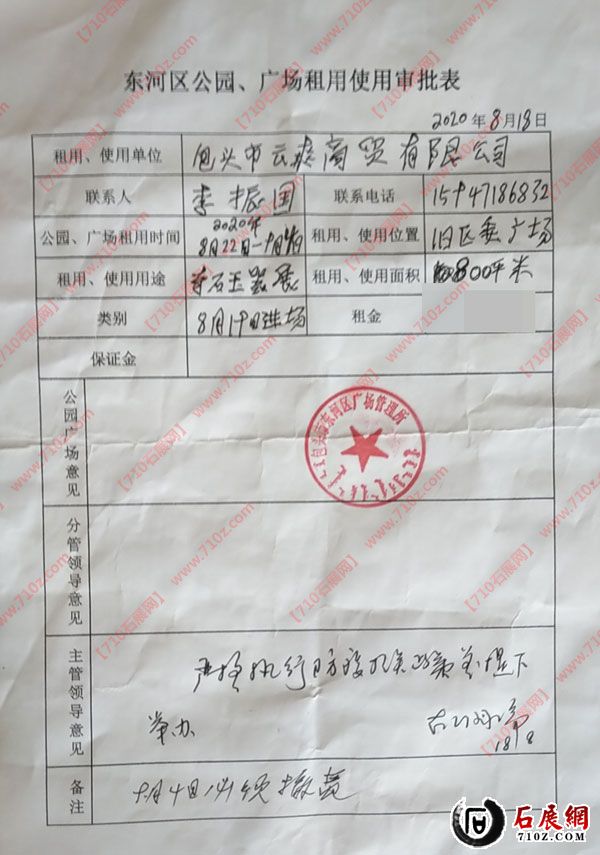 东河区公园、广场租用使用审批表
2020年8月18日
租用、使用单位 包头市云 商贸有限公司
联系人 李振国 联系电话 15947186832
公园、广场租用时间 2020年 8月22日一 租用、使用位置 旧区委广场
租用、使用用途 奇石玉器展 租用、使用面积 800平米
类别 8月19日进场 租金
保证金
公园广场意见
包头市东河区广场管理所
分管领导意见
主管领导意见
严格执行防疫 政策前提下
举办
18/8
备注 月4日必须撤离
【710石展网】
www.710z.com
石展網
710Z.COM